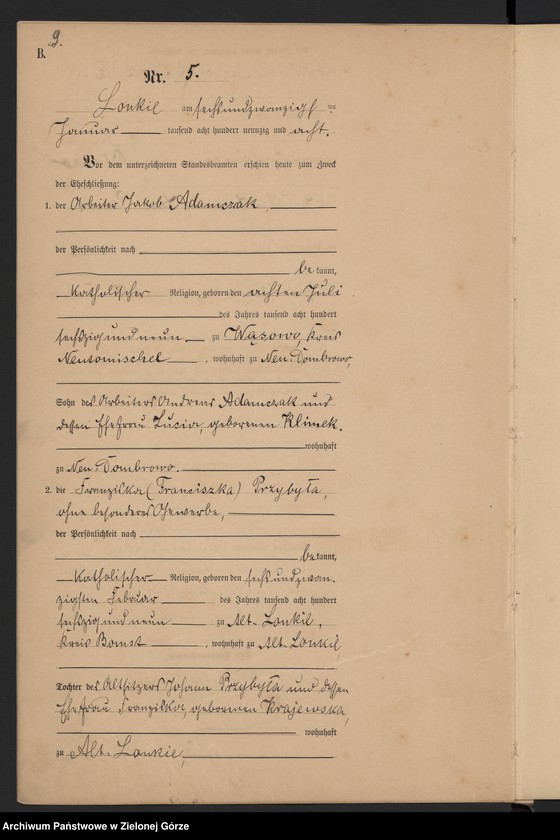 9.
B.
Nr. 5.
Lonkie am sechsundzwanzigst en
Januar tausend acht hundert neunzig und acht.
Vor dem unterzeichneten Standesbeamten erschien heute zum Zweck
der Eheschließung:
1. der Arbeiter Jakob Adamczak
der Persönlichkeit nach
be kannt,
Katholischer Religion, geboren den achten Juli
des Jahres tausend acht hundert
sechszig und neun zu Wąsowo, Kreis
Neutomischel, wohnhaft zu Neu-Dombrowo,
Sohn des Arbeiters Andreas Adamczak und
dessen Ehefrau Lucia, geborenen Klimek.
wohnhaft
zu Neu-Dombrowo.
2. die Franziska (Franciszka) Przybyła,
ohne besonderes Gewerbe,
der Persönlichkeit nach
be kannt,
Katholischer Religion, geboren den sechsundzwan-
zigsten Februar des Jahres tausend acht hundert
sechszig und neun zu Alt-Lonkie,
Kreis Bomst, wohnhaft zu Alt-Lonkie
Tochter des Altsitzers Johann Przybyła und dessen
Ehefrau Franziska, geborenen Krajewska,
wohnhaft
zu Alt-Lonkie,
Archiwum Państwowe w Zielonej Górze